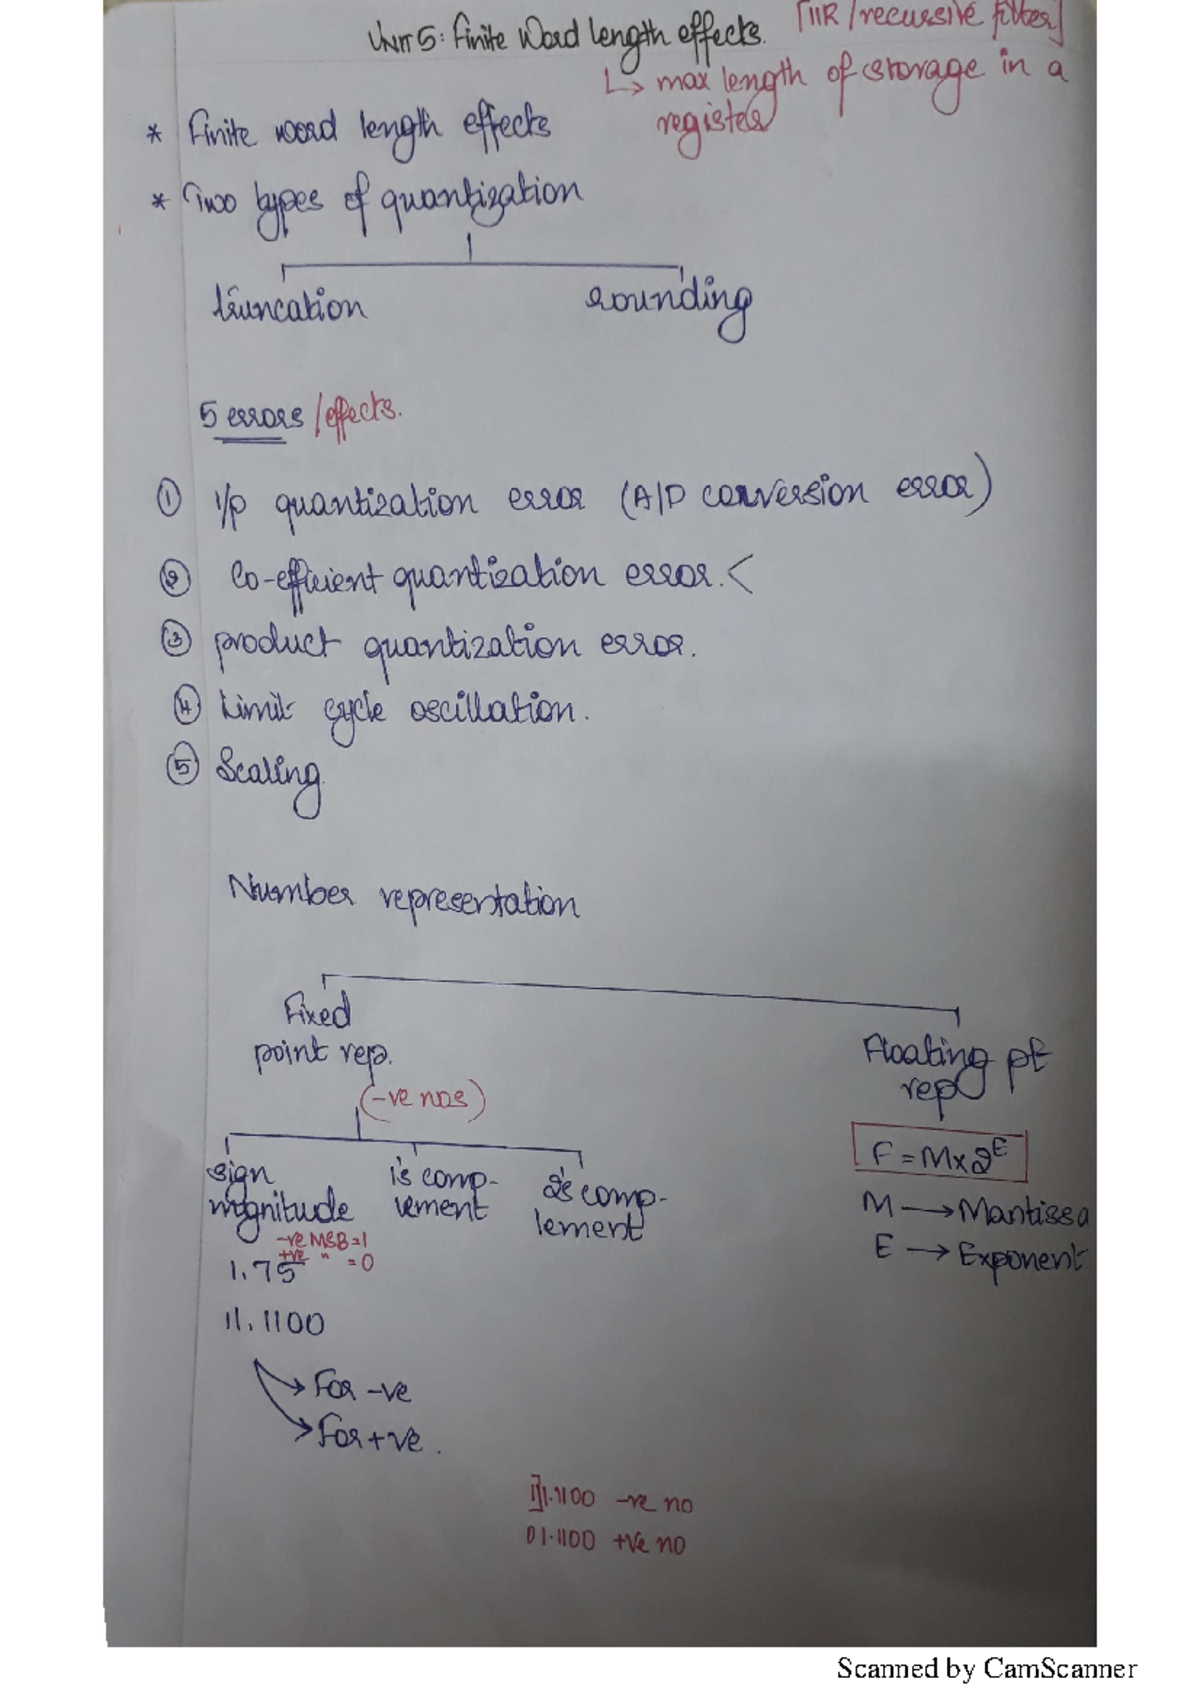 UNIT 5: Finite Word length effects. [IIR / recursive filter]
↳ max length of storage in a
register
* Finite word length effects
* Two types of quantization
truncation rounding
5 errors / effects.
① i/p quantization error (A/D conversion error)
② Co-efficient quantization error. <
③ product quantization error.
④ Limit cycle oscillation.
⑤ Scaling.
Number representation
Fixed
point rep.
(-ve nos)
Floating pt
rep
F = M x 2^E
M → Mantissa
E → Exponent
sign
magnitude
1's comp-
lement
2's comp-
lement
-ve MSB = 1
+ve " = 0
1.75
11.1100
→ For -ve
→ For +ve.
11.1100 -ve no
01.1100 +ve no
Scanned by CamScanner